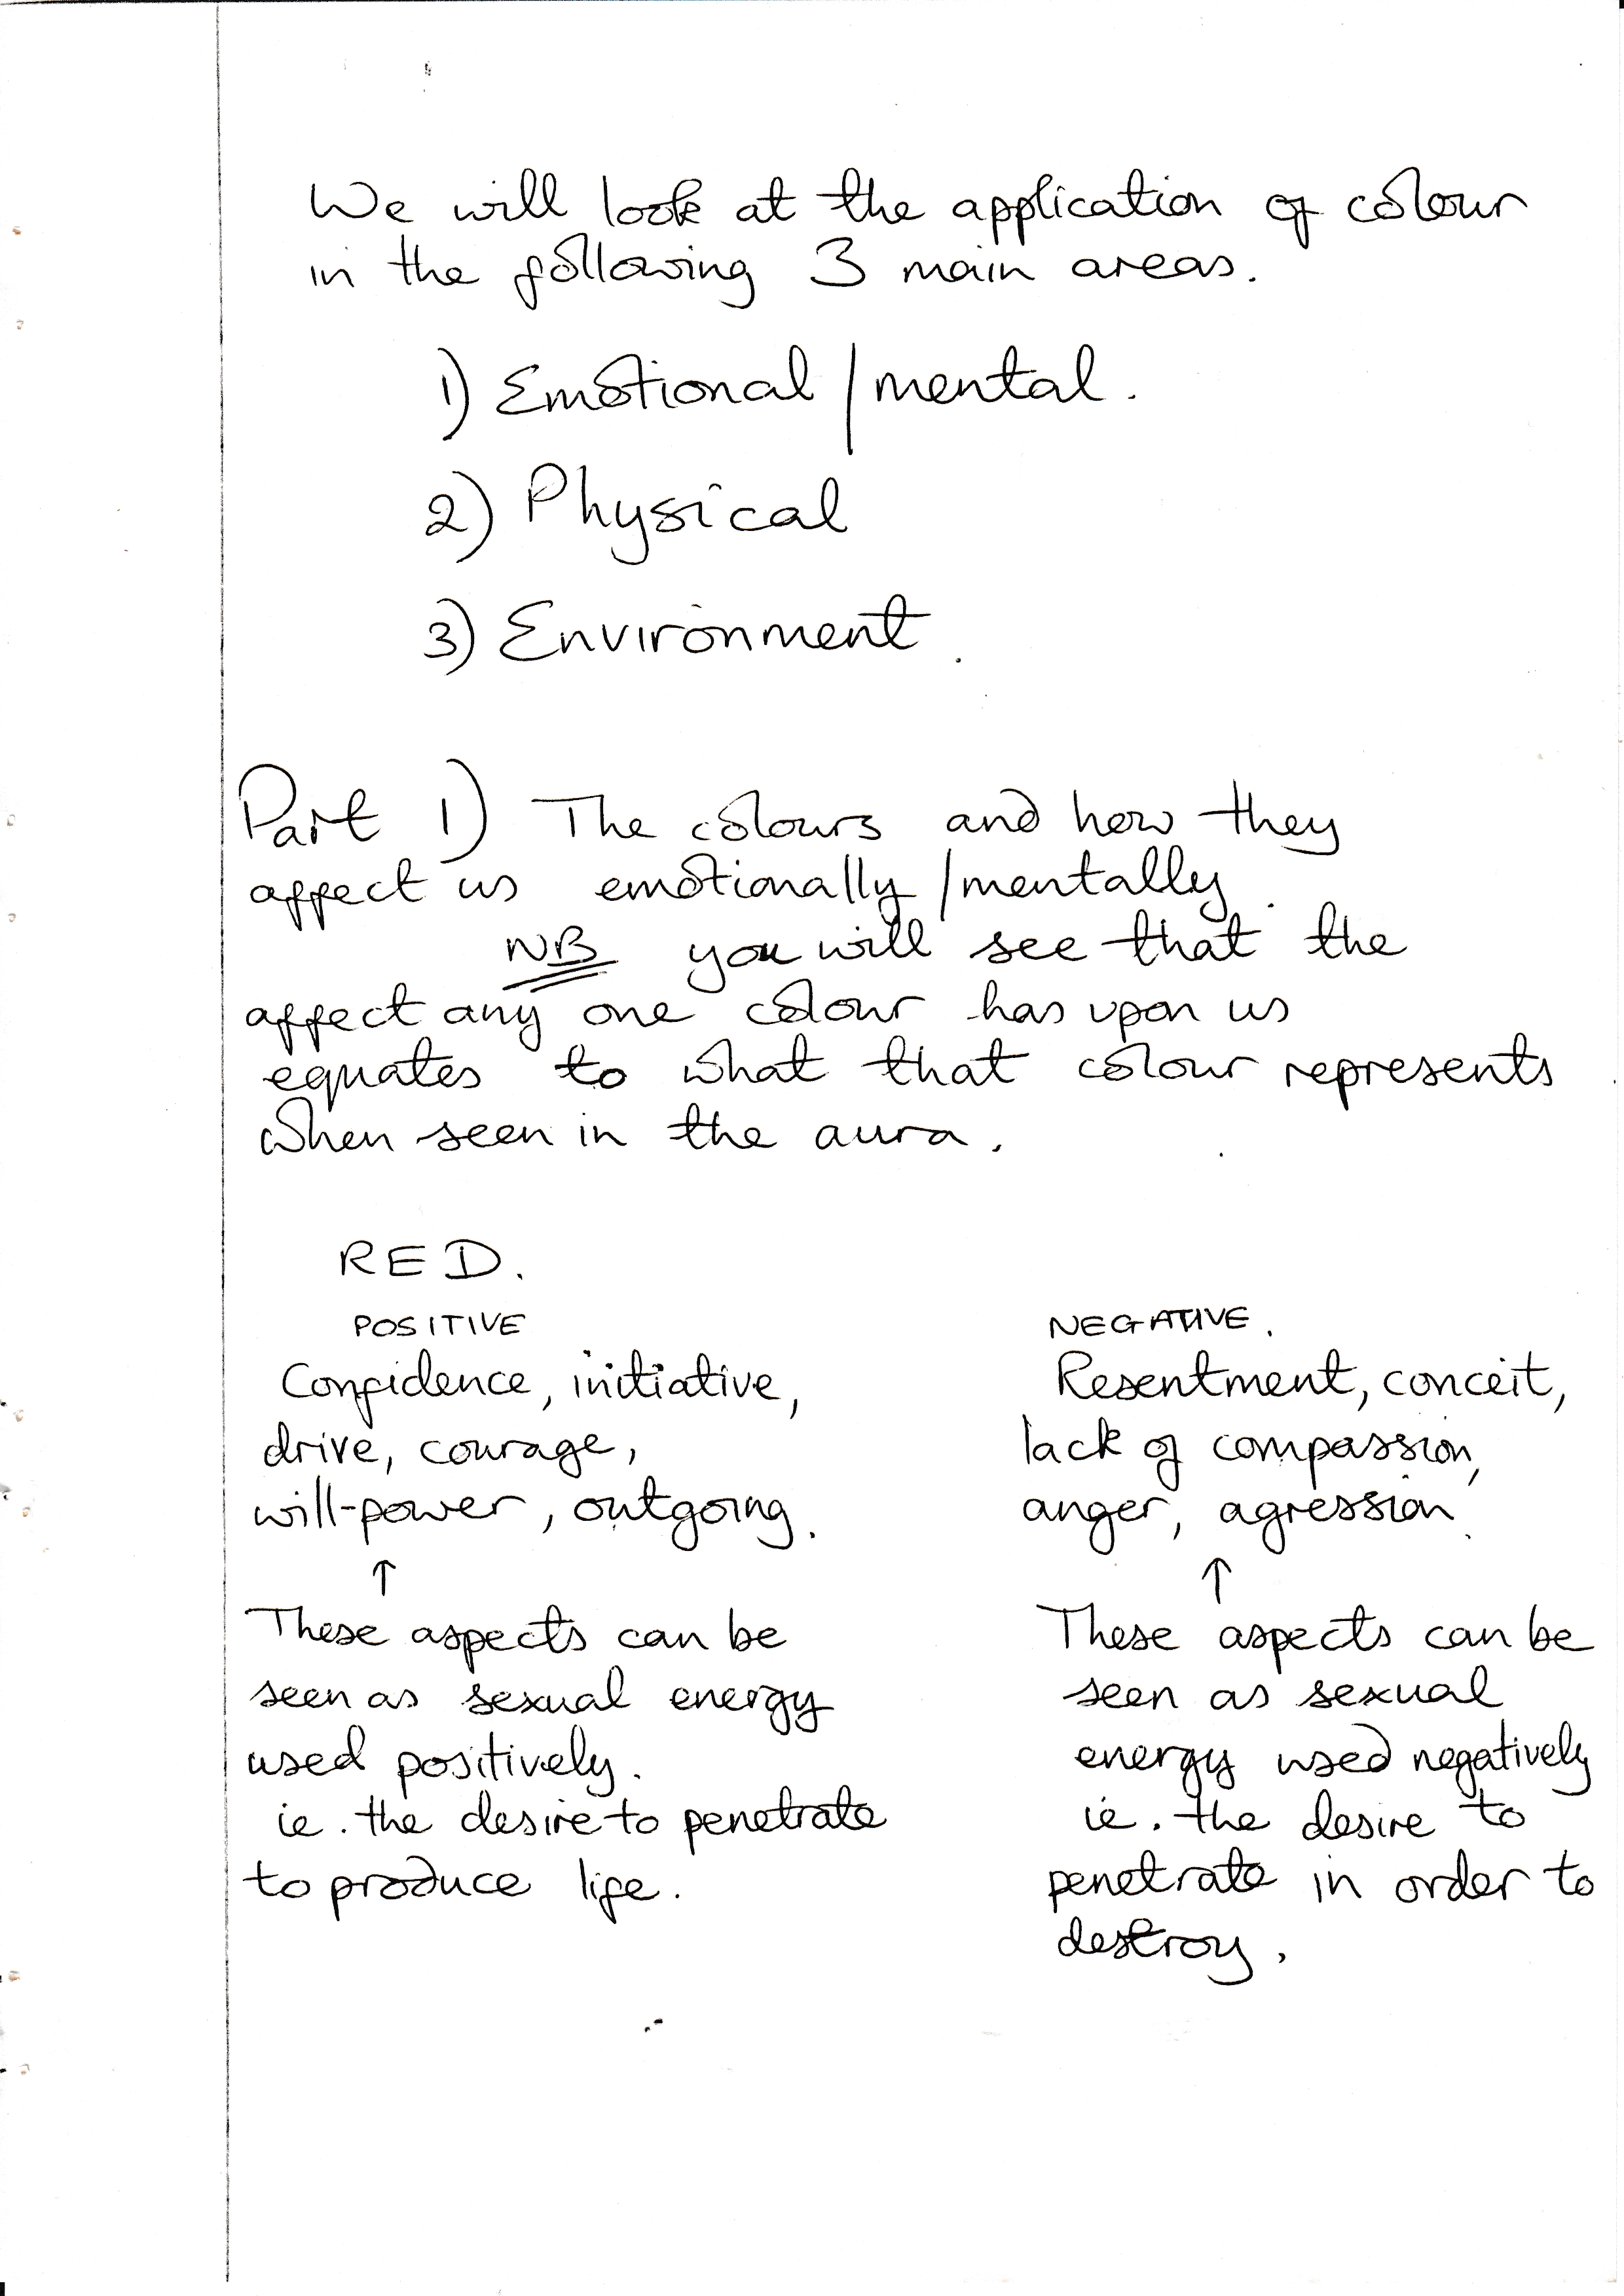 We will look at the application of colour
in the following 3 main areas.
1) Emotional / mental.
2) Physical
3) Environment.
Part 1) The colours and how they
affect us emotionally / mentally.
NB you will see that the
affect any one colour has upon us
equates to what that colour represents
when seen in the aura.
RED.
POSITIVE
Confidence, initiative,
drive, courage,
will-power, outgoing.
↑
These aspects can be
seen as sexual energy
used positively.
ie. the desire to penetrate
to produce life.
NEGATIVE.
Resentment, conceit,
lack of compassion,
anger, agression.
↑
These aspects can be
seen as sexual
energy used negatively
ie. the desire to
penetrate in order to
destroy.